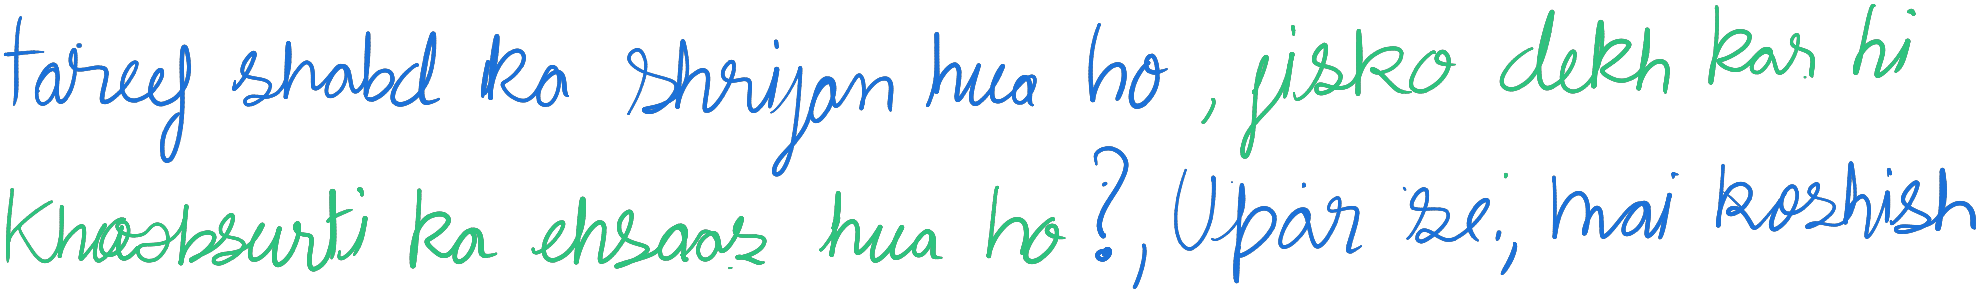 tareef shabd ka shrijan hua ho, jisko dekh kar hi
Khoobsurti ka ehsaas hua ho?, Upar se, mai koshish